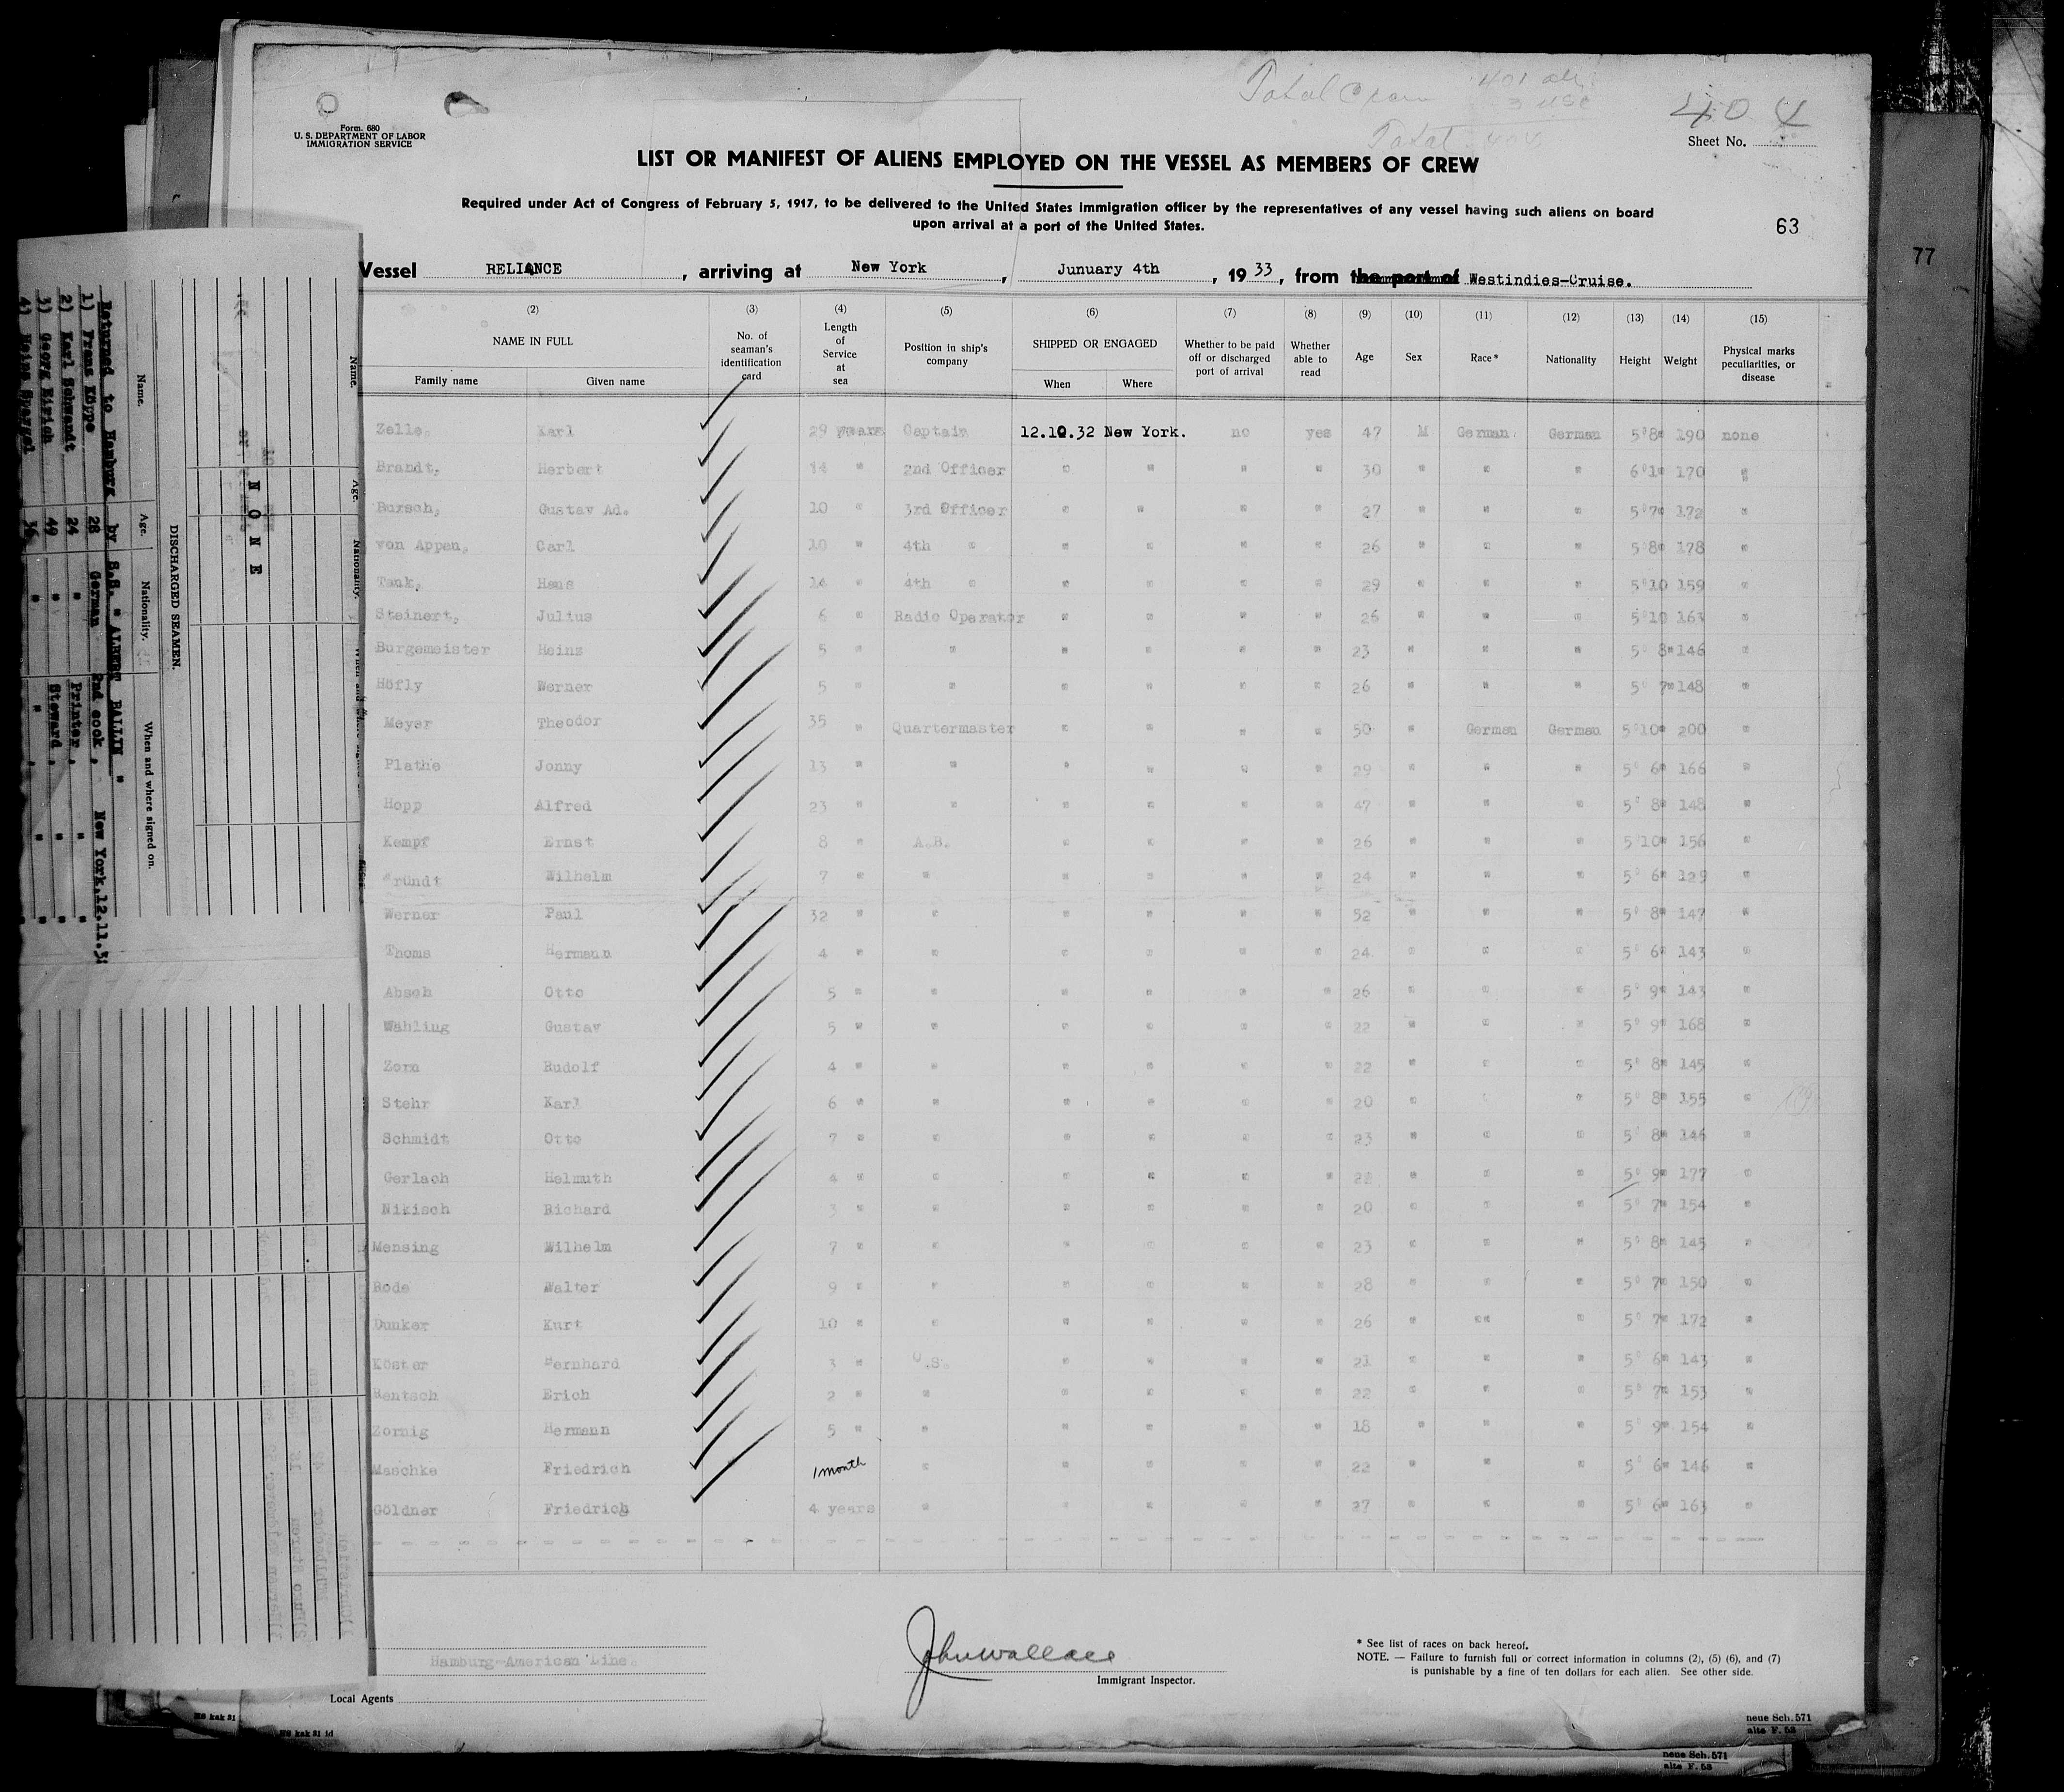 Total Crew 401 al.
3 USC
Total 404
404
Form. 680
U. S. DEPARTMENT OF LABOR
IMMIGRATION SERVICE
Sheet No.
LIST OR MANIFEST OF ALIENS EMPLOYED ON THE VESSEL AS MEMBERS OF CREW
Required under Act of Congress of February 5, 1917, to be delivered to the United States Immigration officer by the representatives of any vessel having such aliens on board
upon arrival at a port of the United States.
63
77
Vessel RELIANCE, arriving at New York, Junuary 4th, 1933, from the port of Westindies-Cruise.
(2) (3) (4) (5) (6) (7) (8) (9) (10) (11) (12) (13) (14) (15)
NAME IN FULL No. of seaman's identification card Length of Service at sea Position in ship's company SHIPPED OR ENGAGED Whether to be paid off or discharged port of arrival Whether able to read Age Sex Race* Nationality Height Weight Physical marks peculiarities, or disease
Family name Given name When Where
Zelle, Karl 29 years Captain 12.10.32 New York. no yes 47 M German German 5'8" 190 none
Brandt, Herbert 14 " 2nd Officer " " " " 30 " " " 6'1" 170 "
Bursch, Gustav Ad. 10 " 3rd Officer " " " " 27 " " " 5'7" 172 "
von Appen, Carl 10 " 4th " " " " " 26 " " " 5'8" 178 "
Tank, Hans 14 " 4th " " " " " 29 " " " 5'10 159 "
Steinert, Julius 6 " Radio Operator " " " " 26 " " " 5'10 163 "
Burgemeister Heinz 5 " " " " " " 23 " " " 5' 8" 146 "
Höfly Werner 5 " " " " " " 26 " " " 5' 7" 148 "
Meyer Theodor 35 " Quartermaster " " " " 50 " German German 5'10" 200 "
Plathe Jonny 13 " " " " " " 29 " " " 5' 6" 166 "
Hopp Alfred 23 " " " " " " 47 " " " 5' 8" 148 "
Kempf Ernst 8 " A.B. " " " " 26 " " " 5'10" 156 "
Gründt Wilhelm 7 " " " " " " 24 " " " 5' 6" 129 "
Werner Paul 32 " " " " " " 52 " " " 5' 8" 147 "
Thoms Hermann 4 " " " " " " 24 " " " 5' 6" 143 "
Absch Otto 5 " " " " " " 26 " " " 5' 9" 143 "
Wähling Gustav 5 " " " " " " 22 " " " 5' 9" 168 "
Zorn Rudolf 4 " " " " " " 22 " " " 5' 8" 145 "
Stehr Karl 6 " " " " " " 20 " " " 5' 8" 155 "
Schmidt Otto 7 " " " " " " 23 " " " 5' 8" 146 "
Gerlach Helmuth 4 " " " " " " 22 " " " 5' 9" 177 "
Nikisch Richard 3 " " " " " " 20 " " " 5' 7" 154 "
Mensing Wilhelm 7 " " " " " " 23 " " " 5' 8" 145 "
Rode Walter 9 " " " " " " 28 " " " 5' 7" 150 "
Dunker Kurt 10 " " " " " " 26 " "" " 5' 7" 172 "
Köster Bernhard 3 " O.S. " " " " 21 " " " 5' 6" 143 "
Rentsch Erich 2 " " " " " " 22 " " " 5' 7" 153 "
Zornig Hermann 5 " " " " " " 18 " " " 5' 9" 154 "
Maschke Friedrich 1 month " " " " " 22 " " " 5' 6" 146 "
Göldner Friedrich 4 years " " " " " 27 " " " 5' 6" 163 "
Hamburg-American Line.
Local Agents
John Wallace
Immigrant Inspector.
* See list of races on back hereof.
NOTE. — Failure to furnish full or correct information in columns (2), (5) (6), and (7)
is punishable by a fine of ten dollars for each alien. See other side.
neue Sch. 571
alte F. 53
neue Sch. 571
alte F. 53
HS kak 31
HS kak 31 id
Name. Age. Nationality.
NONE
DISCHARGED SEAMEN.
Name. Age. Nationality. When and where signed on.
Returned to Hamburg by S.S. " ALBERT BALLIN "
1) Franz Köppe 28 German 2nd cook, New York, 12.11.32
2) Karl Schwandt 24 " Printer, " "
3) Georg Hirich 49 " Steward, " "
4) Heinz Spargel 16 " " , " "